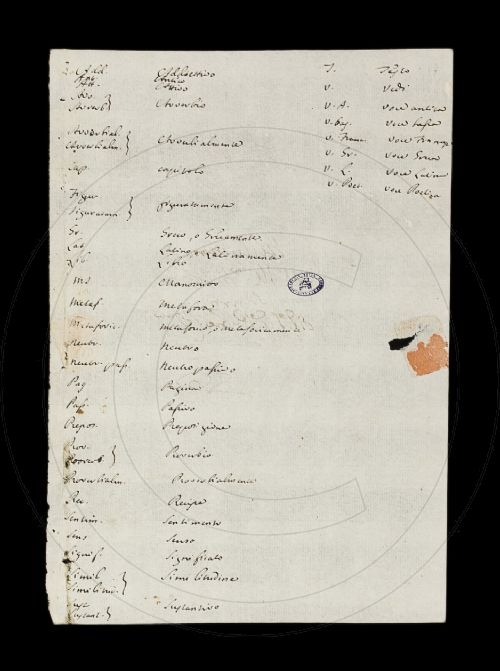 Add. Addiettivo
Ant. Antico
Att. Attivo
Avv.
Avverb} Avverbio
Avverbial.
Avverbialm.} Avverbialmente
Cap. capitolo
Figur
Figuratam} figuratamente
Gr. Greco, o Grecamente
Lat Latino, o Latinamente
Lib Libro
MS Manoscritto
Metaf. Metafora
Metaforic. Metaforico, o metaforicamente
Neutr. Neutro
Neutr. pass. Neutro passivo
Pag Pagina
Pass. Passivo
Prepos. Preposizione
Prov.
Proverb} Proverbio
Proverbialm. Proverbialmente
Rec. Recipe
Sentim. Sentimento
Sens Senso
Signif. Significato
Simil.
Similitud.} Similitudine
Sust
Sustant.} Sustantivo
T. Testo
V. Vedi
V. A. Voce antica
V. Bass. Voce bassa
V. Franc. Voce Franzese
V. Gr. Voce Greca
V. L. Voce Latina
V. Poet. Voce Poetica